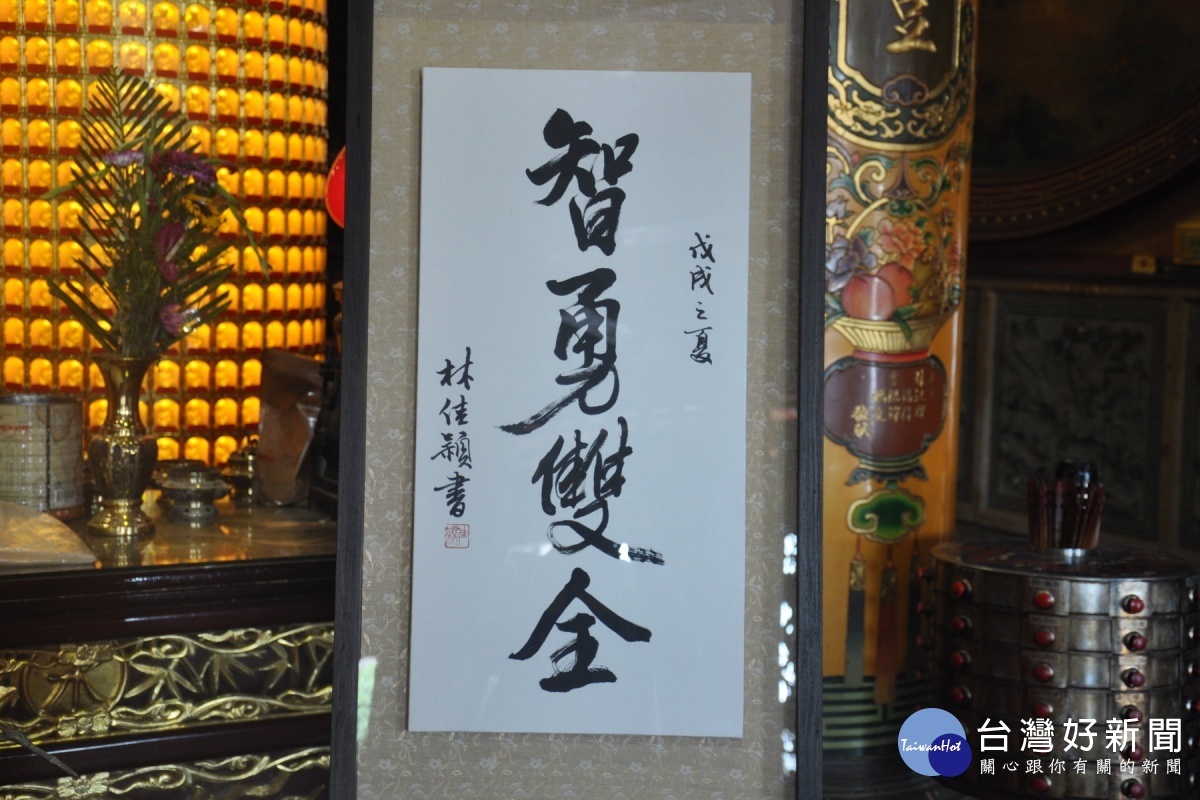 智勇雙全
戊戌之夏
林佳穎書
TaiwanHot
台灣好新聞
關心跟你有關的新聞